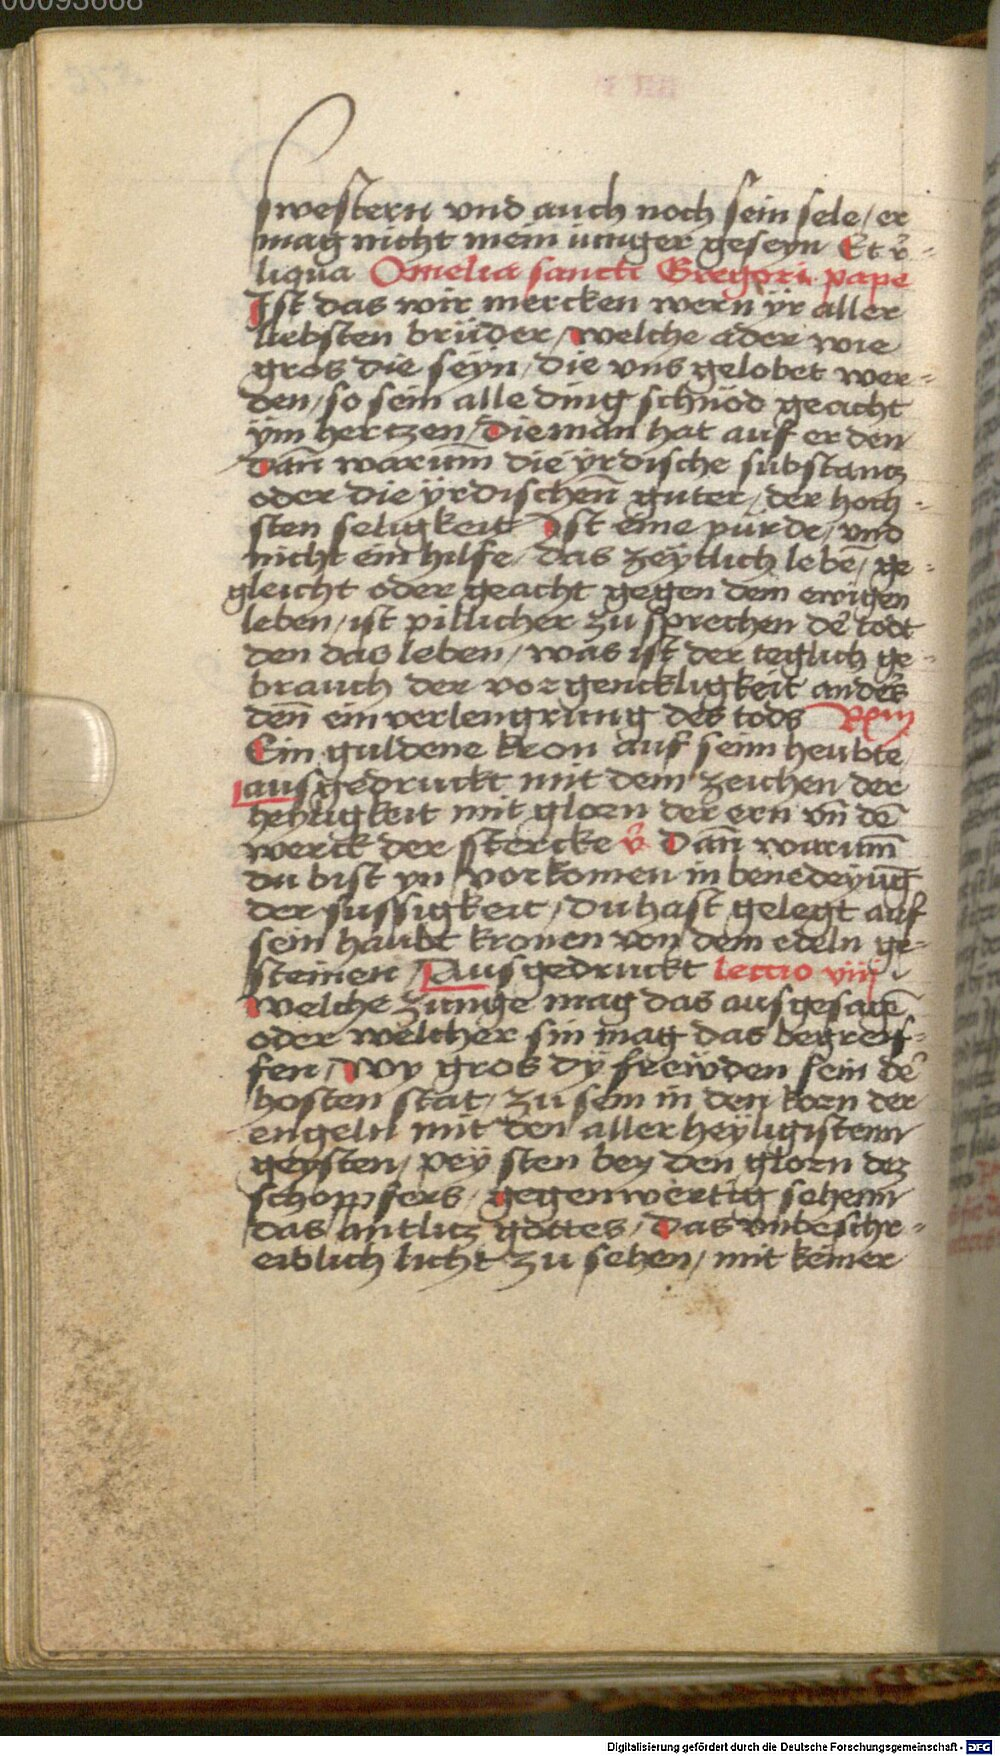 00093668
swestern vnd auch noch sein sele / er
mag nicht mein iunger geseyn Et r̃-
liqua Omelia sancti Gregori pape
Ist das wir mercken wern ÿr aller
liebsten brüder / welche ader wie
gros die seÿn / die vns gelobet wer-
den / so sein alle ding schnöd geacht
ÿm hertzen / Die man hat auf erden
Dan̄ warum̄ die ÿrdische substantz
oder die ÿrdischen̄ guter / der hoch-
sten seligkeit Ist eine purde / vnd
nicht ein hilfe / das zeÿtlich lebē / ge-
gleicht oder geacht gegen dem ewigen
leben / ist pillicher zu sprechen de᷑ todt
den das leben / was ist der teglich ge-
brauch der vorgenckligkeit ande᷑s
den̄ ein verlengrung des tods Rm̃
Ein guldene kron auf seim heubte
ausgedruckt mit dem zeichen der
heyligkeit mit glorn der ern vn̄ dē
werck der stercke v᷑ Dan̄ warum̄
du bist yn vorkomen in benedeyūg
der sussigkeit / Du hast gelegt auf
sein haubt kronen von dem edeln ge-
steinen / Ausgedruckt lectio viij
Welche zunge mag das ausgesagē
oder welcher sin mag das begreif-
fen / Wy gros dÿ freẅden sein de᷑
hosten stat / zu sein in den korn der
engeln mit den allerheÿligistenn
geysten / peÿ sten bey den glorn dez
schopffers / gegenwertig sehenn
das antlitz gottes / Das vnbeschr-
eiblich licht zu sehen / mit keiner
Digitalisierung gefördert durch die Deutsche Forschungsgemeinschaft - DFG